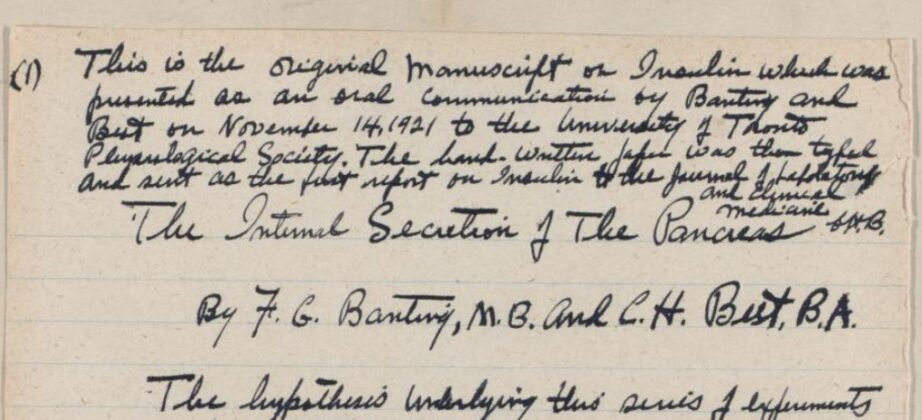 (1) This is the original Manuscript on Insulin which was
presented as an oral communication by Banting and
Best on November 14, 1921 to the University of Toronto
Physiological Society. The hand-written paper was then typed
and sent as the first report on Insulin to the Journal of Laboratory
and Clinical
Medicine
The Internal Secretion of The Pancreas
By F. G. Banting, M.B. and C. H. Best, B.A.
The hypothesis underlying this series of experiments